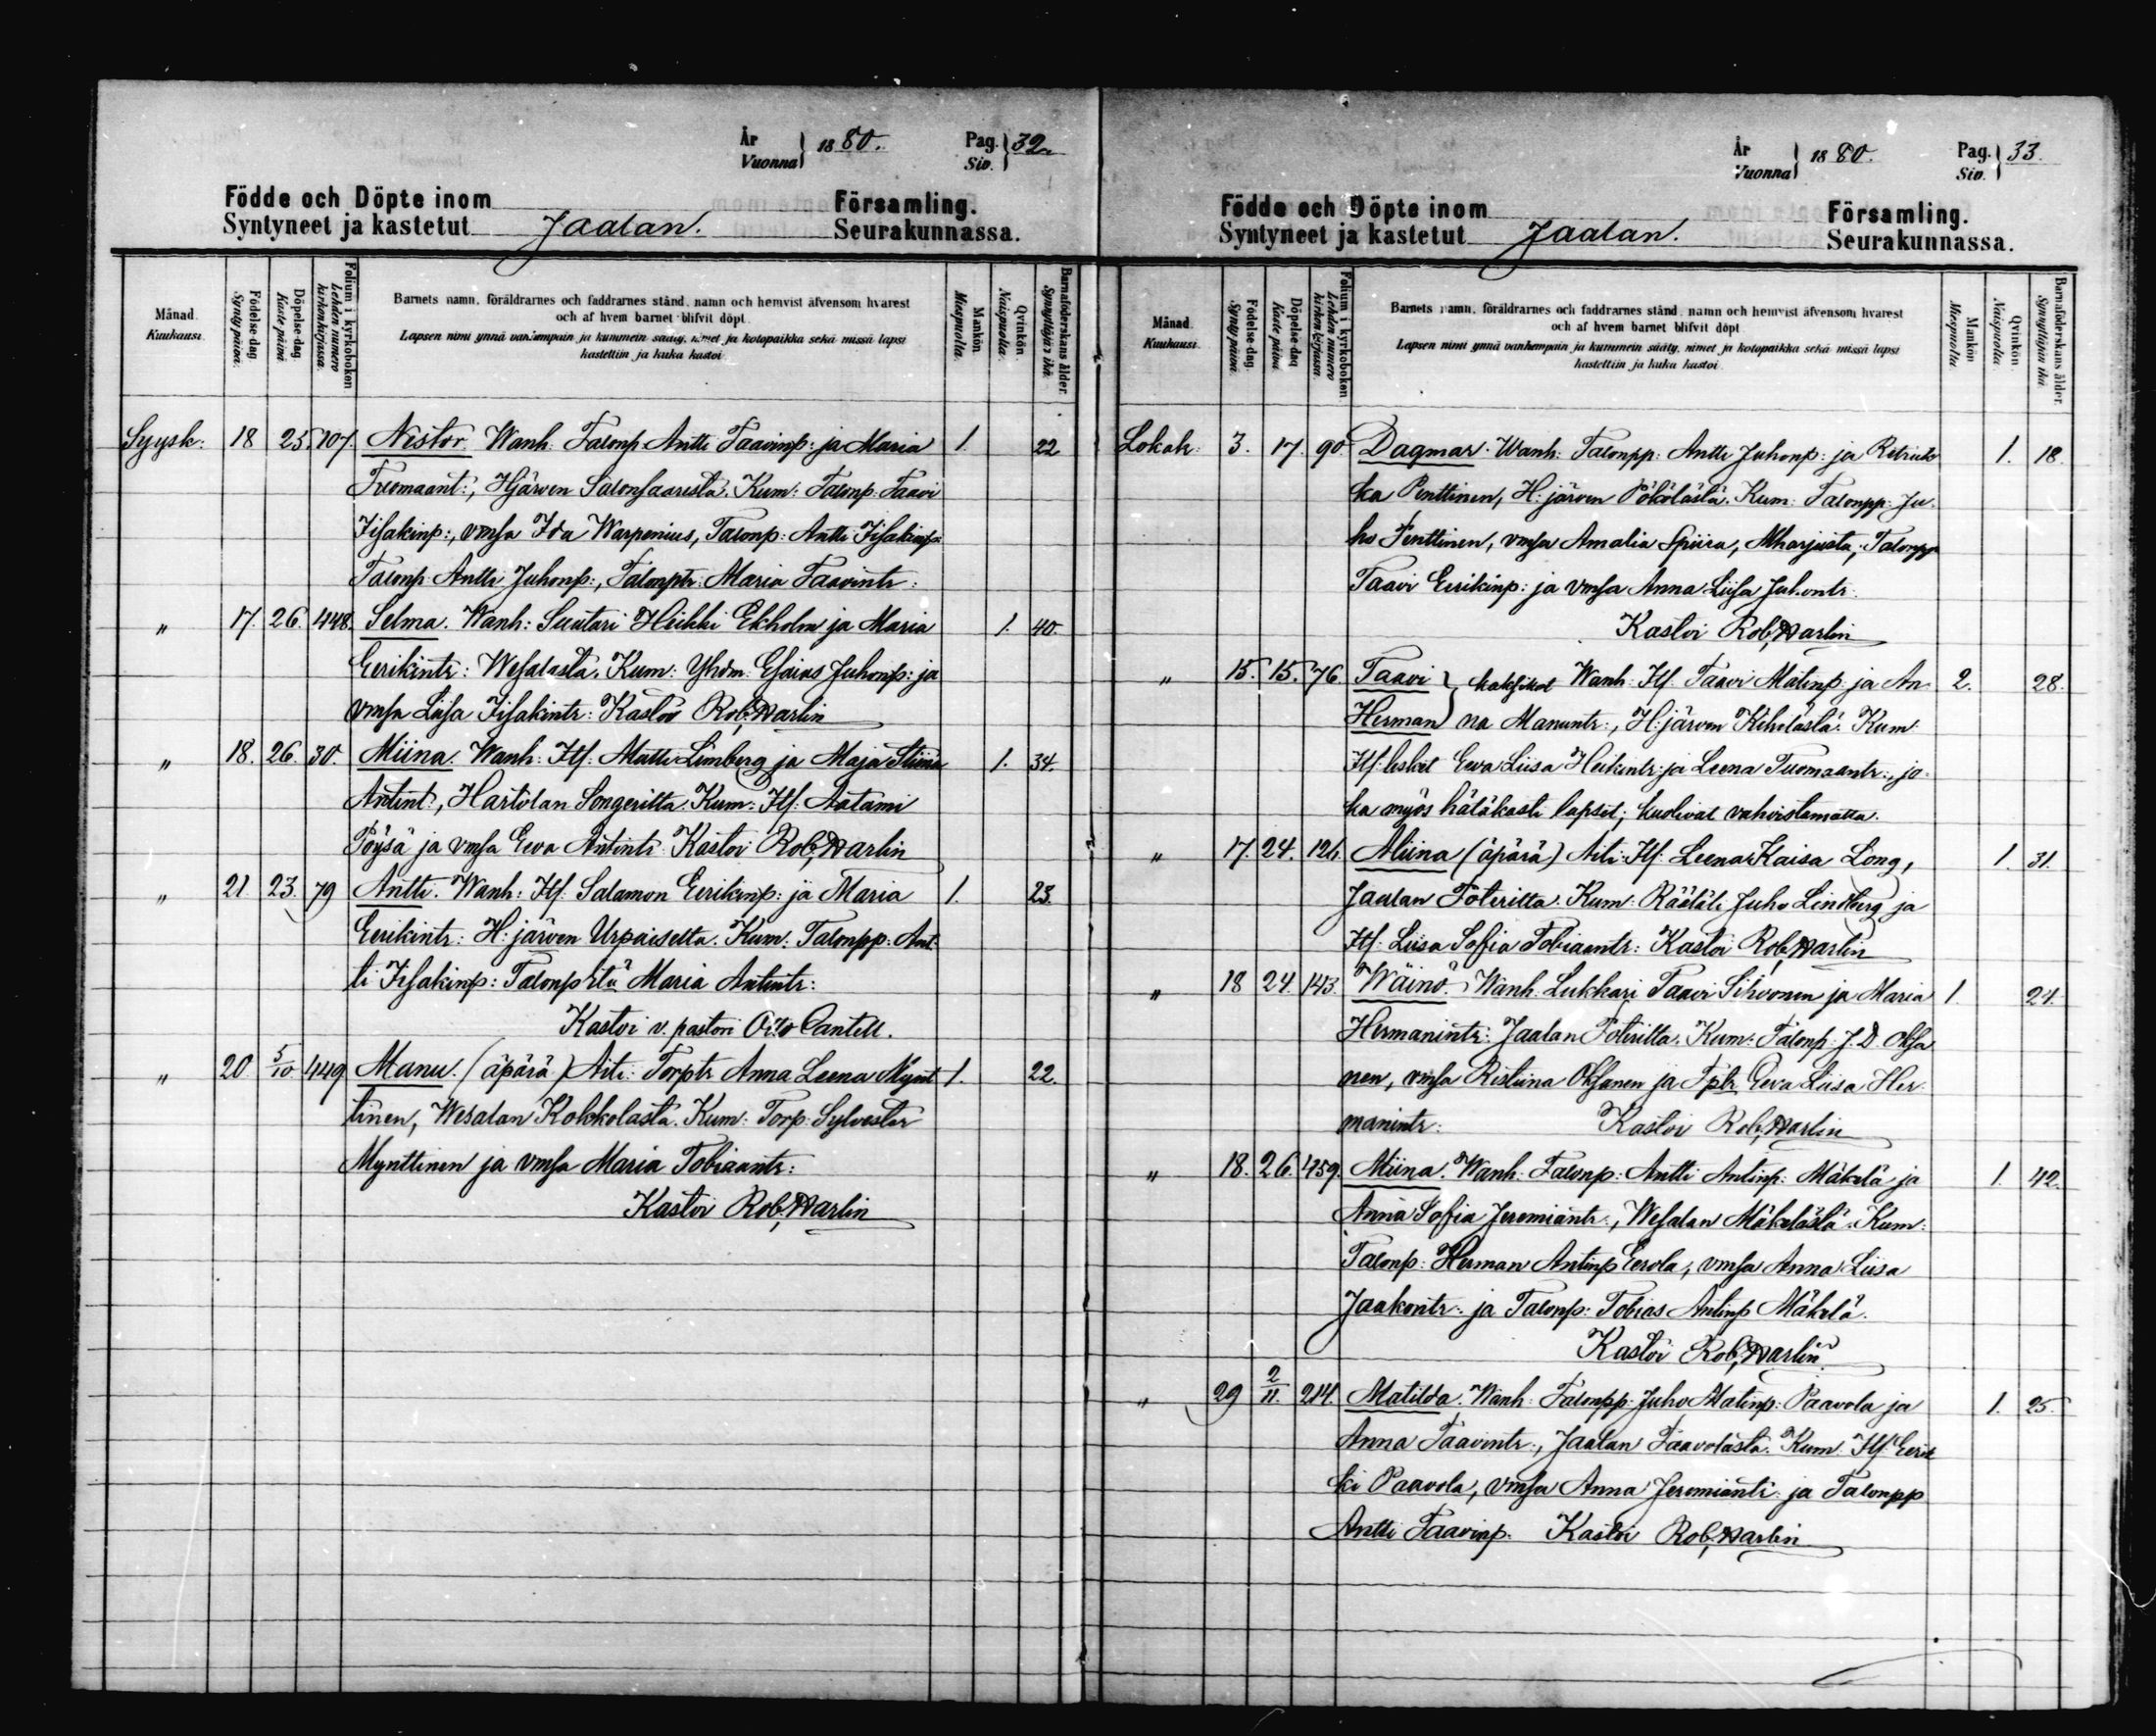 År
Vuonna } 1880. Pag.
Siv. } 32.
Födde och Döpte inom
Syntyneet ja kastetut Jaalan. Församling.
Seurakunnassa.
Månad
Kuukausi.
Födelse-dag
Synty päivä.
Döpelse-dag
Kaste päivä
Folium i kyrkoboken
Lehden numero
kirkonkirjassa.
Barnets namn, föräldrarnes och faddrarnes stånd, namn och hemvist äfvensom hvarest
och af hvem barnet blifvit döpt.
Lapsen nimi ynnä vanhempain ja kummein sääty, nimet ja kotopaikka sekä missä lapsi
kastettiin ja kuka kastoi
Mankön
Miespuolia.
Qvinkön
Naispuolia.
Barnaföderskans ålder.
Synnyttäjän ikä.
Syysk: 18 25. 107. Nestor. Wanh: Talonp. Antti Taavinp: ja Maria 1. 22
Tuomaant:, H:järven Salonsaaresta. Kum: Talonp. Taavi
Iisakinp:, vmsa Ida Warpenius, Talonp: Antti Iisakinp:
Talonp. Antti Juhonp:, Talonptr: Maria Taavintr:
" 17. 26. 448. Selma. Wanh: Suutari Heikki Ekholm ja Maria 1. 40.
Eerikintr: Wesalasta. Kum: Yhdm: Esaias Juhonp: ja
vmsa Liisa Iisakintr: Kastoi Rob. Warlin
" 18. 26. 30. Miina. Wanh: Itf. Matti Limberg ja Maja Stiina 1. 34.
Antint:, Hartolan Songeritta. Kum: Itf. Aatami
Pöysä ja vmsa Eeva Antintr: Kastoi Rob. Warlin
" 21. 23. 79 Antti. Wanh: Itf. Salamon Eerikinp: ja Maria 1. 23.
Eerikintr: H:järven Urpaiselta. Kum. Talonpp: Ant-
ti Iisakinp: Talonptr Maria Antintr:
Kastoi v. pastori Otto Cantell.
" 20 5/10 449 Manu. (äpärä) Äiti: Torptr Anna Leena Mynt- 1. 22.
tinen, Wesalan Kokkolasta. Kum: Torp. Sylvester
Mynttinen ja vmsa Maria Tobiaantr:
Kastoi Rob. Warlin
År
Vuonna } 1880. Pag.
Siv. } 33.
Födde och Döpte inom
Syntyneet ja kastetut Jaalan. Församling.
Seurakunnassa.
Månad
Kuukausi.
Födelse-dag.
Synty päivä.
Döpelse-dag
Kaste päivä
Folium i kyrkoboken
Lehden numero
kirkonkirjassa.
Barnets namn, föräldrarnes och faddrarnes stånd, namn och hemvist äfvensom hvarest
och af hvem barnet blifvit döpt
Lapsen nimi ynnä vanhempain ja kummein sääty, nimet ja kotopaikka sekä missä lapsi
kastettiin ja kuka kastoi.
Mankön
Miespuolia
Qvinkön.
Naispuolia.
Barnaföderskans ålder.
Synnyttäjän ikä
Lokak: 3. 17. 90. Dagmar. Wanh: Talonpp: Antti Juhonp: ja 1. 18.
ka Penttinen, H:järven Pökölästä. Kum: Talonpp: Ju-
ho Penttinen, vmsa Amalia Spiira, Mharjusta, Talonpp
Taavi Eerikinp: ja vmsa Anna Liisa Juhontr.
Kastoi Rob. Warlin
" 15. 15. 76. Taavi } kaksikot Wanh: Itf. Taavi Matinp: ja An- 2. 28.
Herman } na Manuntr:, H:järven Kihelästä. Kum:
Itf. lesket Eeva Liisa Heikintr: ja Leena Tuomaantr:, jo-
ka myös hätäkasti lapset; kuolivat vahvistamatta.
" 17. 24. 126. Miina (äpärä) Äiti: Itf. Leena Kaisa Long, 1. 31.
Jaalan Pöteritta. Kum: Räätäli Juho Lindberg ja
Itf. Liisa Sofia Tobiaantr: Kastoi Rob. Warlin
" 18 24. 143. Wäinö. Wanh. Lukkari Taavi Sihvonen ja Maria 1. 24.
Hermanintr: Jaalan Pöteritta. Kum: Talonp: J. D. Oksa-
nen, vmsa Ristiina Oksanen ja Tptr. Eeva Liisa Her-
manintr: Kastoi Rob. Warlin
" 18. 26. 459. Miina. Wanh: Talonp: Antti Antinp: Mäkelä ja 1. 42.
Anna Sofia Jeremiantr:, Wesalan Mäkelästä. Kum:
Talonp: Herman Antinp Eerola, vmsa Anna Liisa
Jaakontr: ja Talonp: Tobias Antinp Mäkelä.
Kastoi Rob. Warlin
" 29 2/11. 214. Matilda. Wanh: Talonpp: Juho Matinp: Paavola ja 1. 25.
Anna Taavintr:, Jaalan Paavolasta. Kum: Itf. Eerik-
ki Paavola, vmsa Anna Jeremiantr: ja Talonpp
Antti Taavinp: Kastoi Rob. Warlin